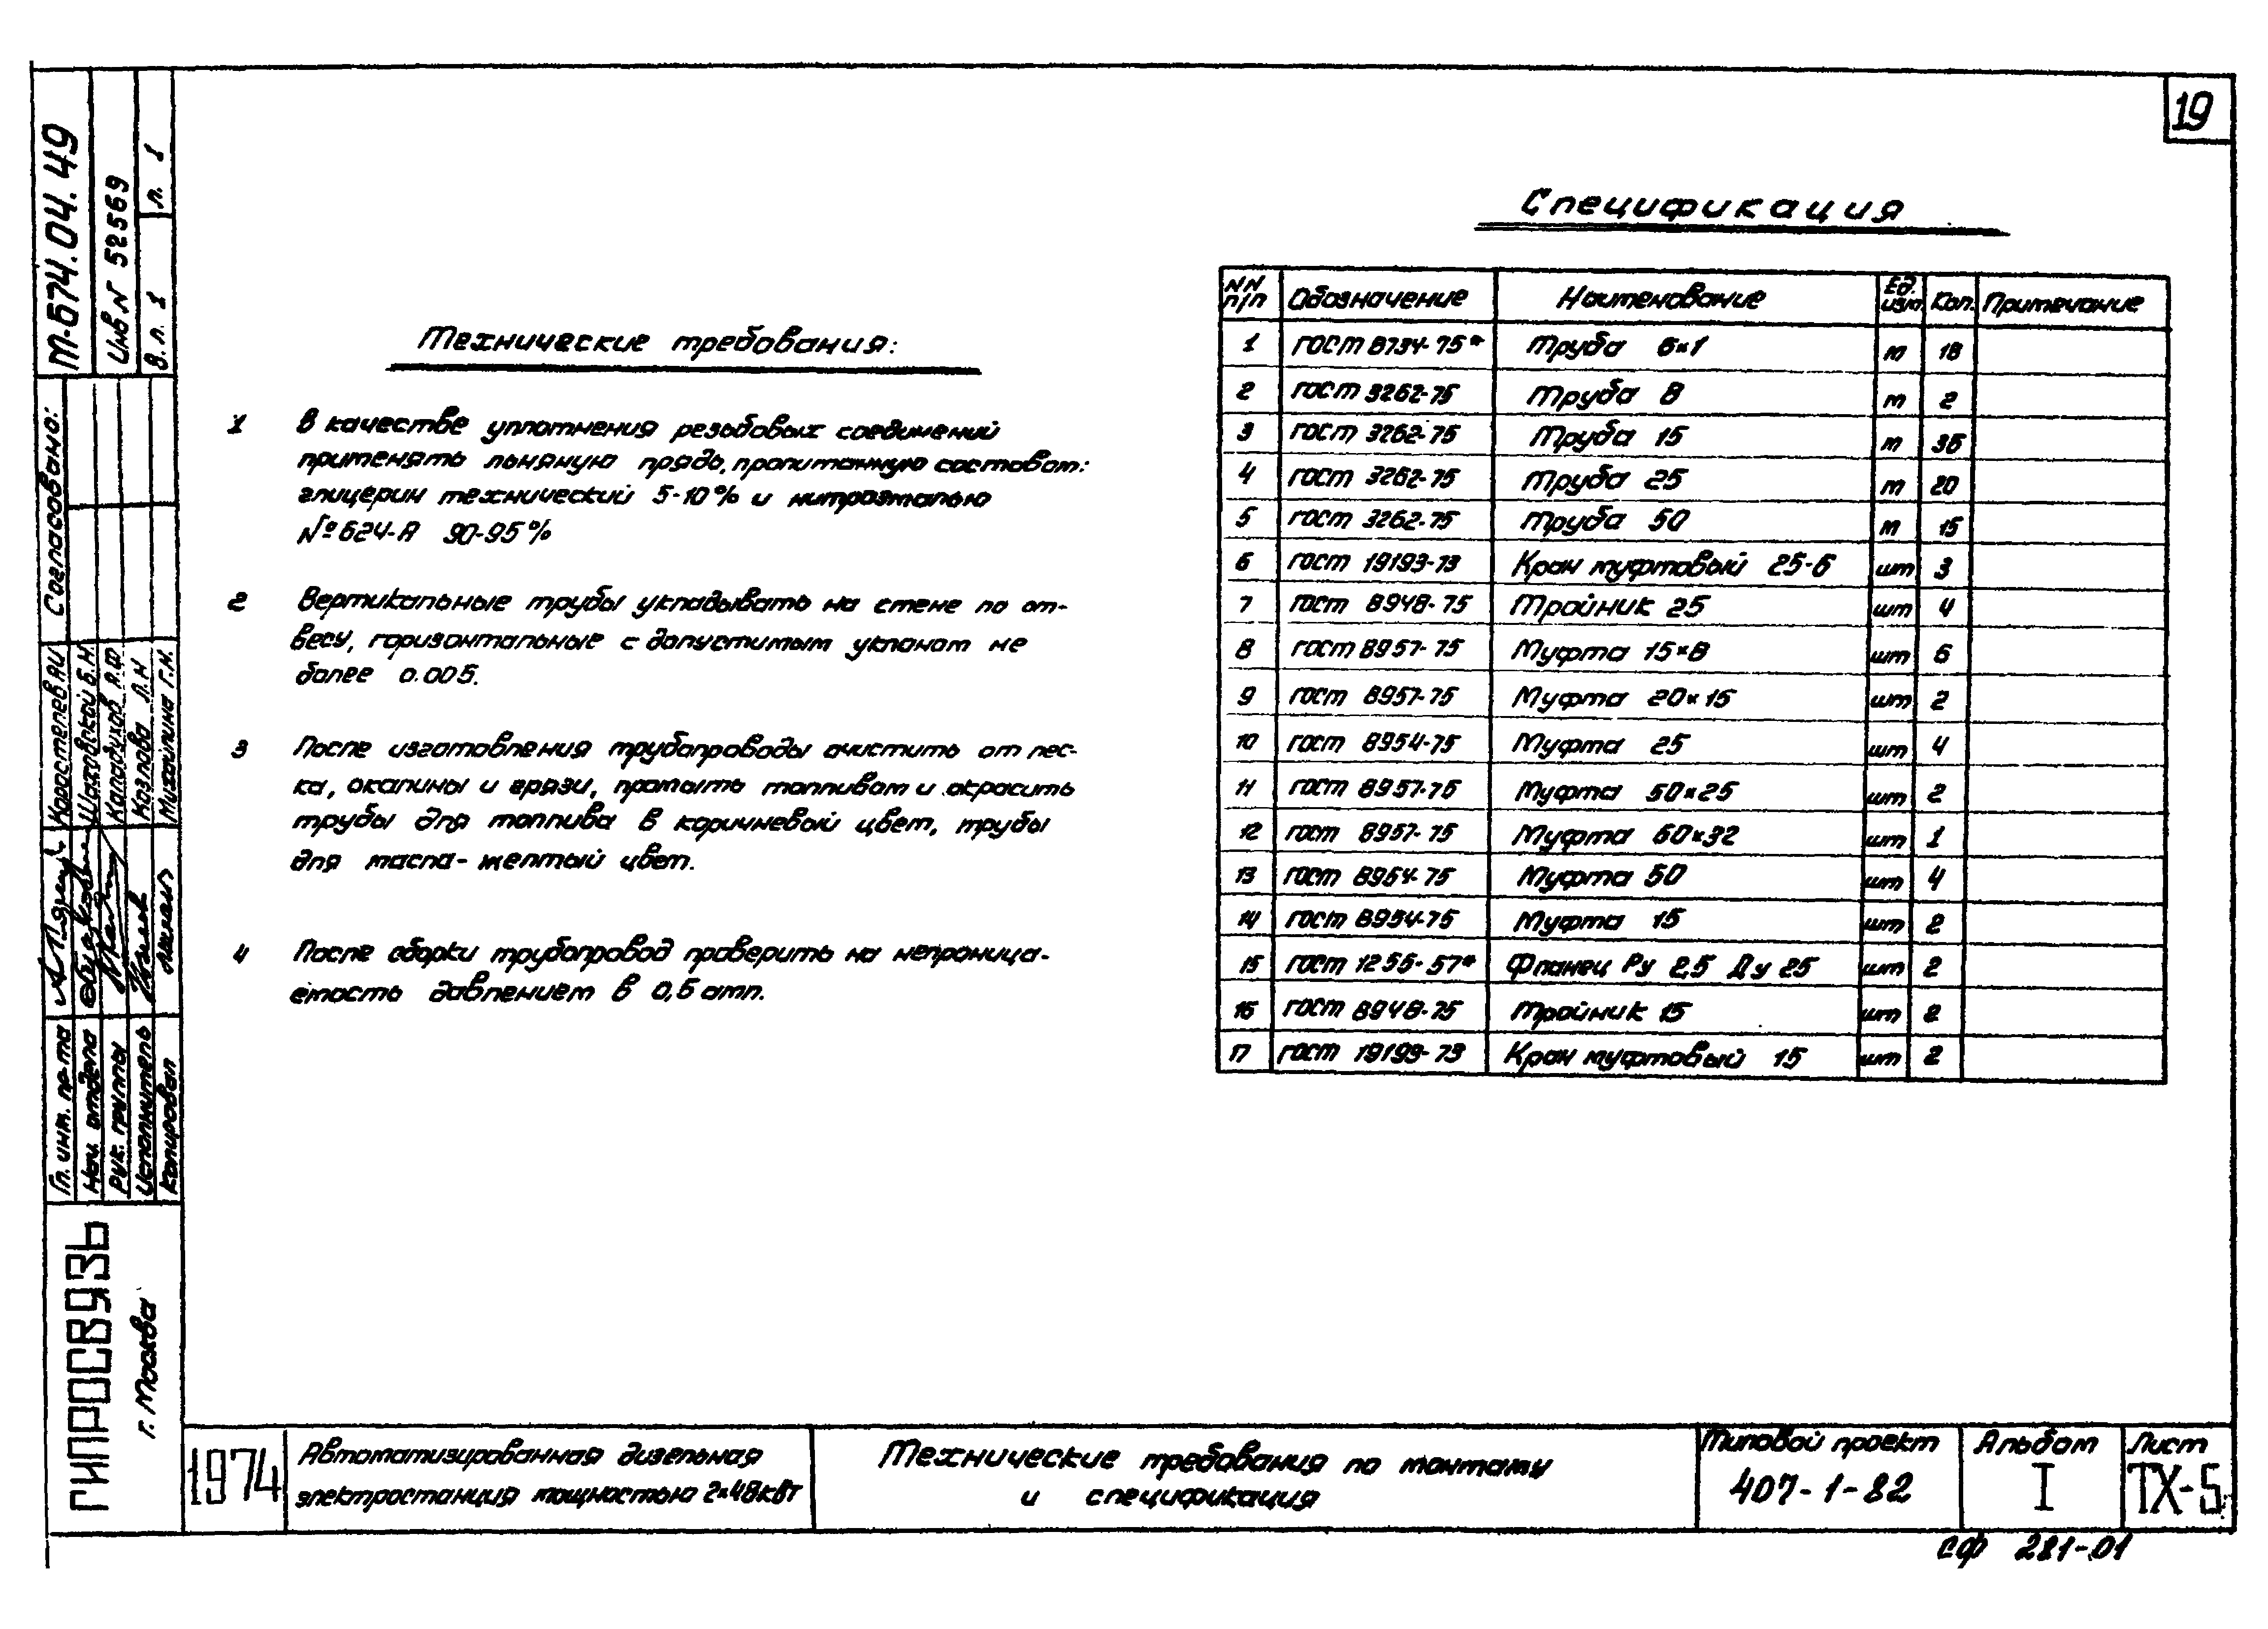 19
М-674.04.49
Инв.N 52569
В.л. 1 л. 1
Согласовано:
Коростелев А.И.
Шаховской Б.Н.
Каладухов А.Ф
Козлова Л.Н
Михайлина Г.И.
Гл. инж. пр-та
Нач. отдела
Рук. группы
Исполнитель
Копировал
ГИПРОСВЯЗЬ
г. Москва
Технические требования:
1 В качестве уплотнения резьбовых соединений
применять льняную прядь, пропитанную составом:
глицерин технический 5-10% и нитроэмалью
№624-А 90-95%
2 Вертикальные трубы укладывать на стене по от-
весу, горизонтальные с допустимым уклоном не
более 0.005.
3 После изготовления трубопроводы очистить от пес-
ка, окалины и грязи, промыть топливом и окрасить
трубы для топлива в коричневый цвет, трубы
для масла - желтый цвет.
4 После сборки трубопровод проверить на непроница-
емость давлением в 0,5 атм.
Спецификация
NN п/п Обозначение Наименование Ед. изм. Кол. Примечание
1 ГОСТ 8734-75* Труба 6×1 м 18
2 ГОСТ 3262-75 Труба 8 м 2
3 ГОСТ 3262-75 Труба 15 м 35
4 ГОСТ 3262-75 Труба 25 м 20
5 ГОСТ 3262-75 Труба 50 м 15
6 ГОСТ 19193-73 Кран муфтовый 25-6 шт 3
7 ГОСТ 8948-75 Тройник 25 шт 4
8 ГОСТ 8957-75 Муфта 15×8 шт 6
9 ГОСТ 8957-75 Муфта 20×15 шт 2
10 ГОСТ 8954-75 Муфта 25 шт 4
11 ГОСТ 8957-75 Муфта 50×25 шт 2
12 ГОСТ 8957-75 Муфта 50×32 шт 1
13 ГОСТ 8954-75 Муфта 50 шт 4
14 ГОСТ 8954-75 Муфта 15 шт 2
15 ГОСТ 1255-57* Фланец Ру 2,5 Ду 25 шт 2
16 ГОСТ 8948-75 Тройник 15 шт 2
17 ГОСТ 19193-73 Кран муфтовый 15 шт 2
1974
Автоматизированная дизельная
электростанция мощностью 2×48кВт
Технические требования по монтажу
и спецификация
Типовой проект
407-1-82
Альбом
I
Лист
ТХ-5
СФ 281-01